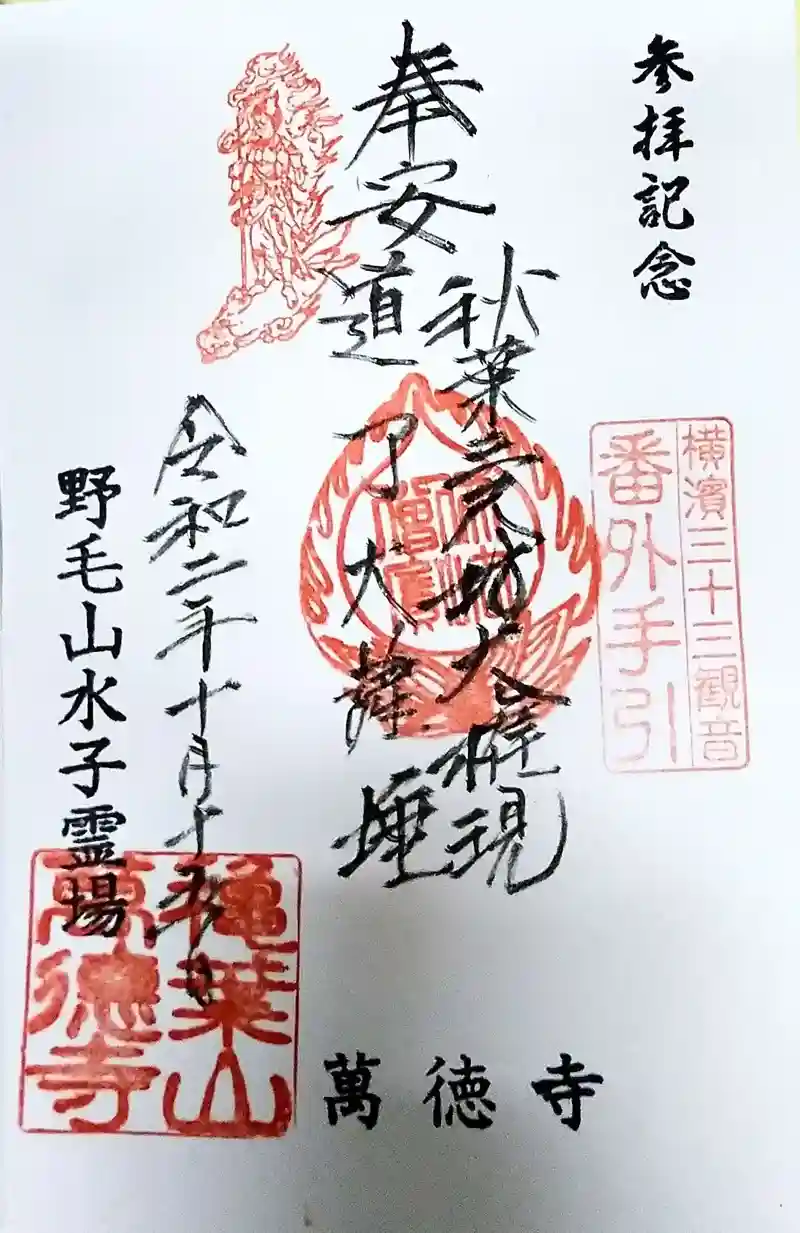 参拝記念
横濱三十三観音
番外手引
奉安
秋葉三尺坊大権現
道了大薩埵
令和二年十月十五日
野毛山水子霊場
穐葉山
萬德寺
萬徳寺